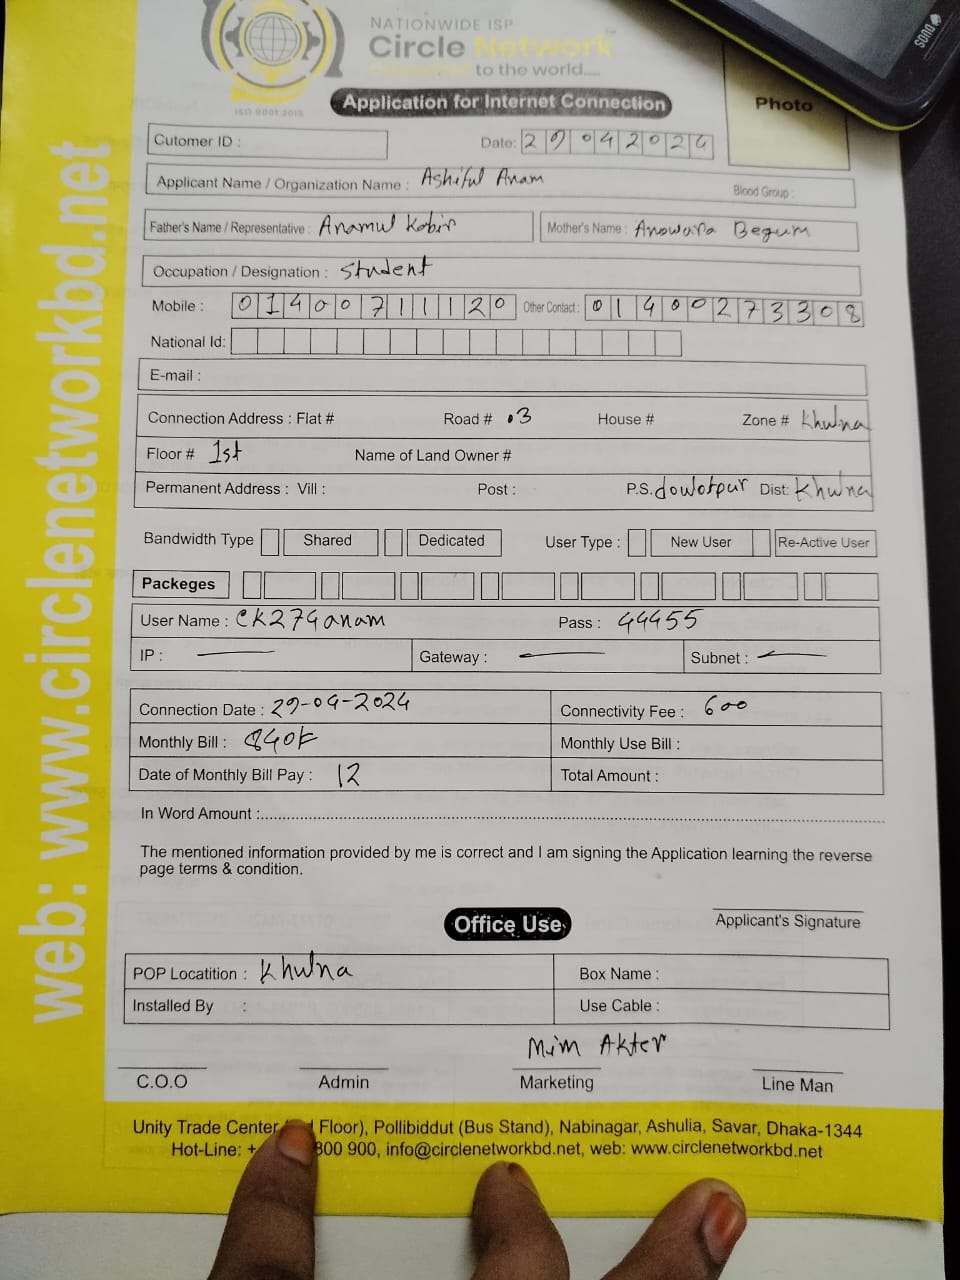 NATIONWIDE ISP
Circle Network
to the world....
ISO 9001:2015
Application for Internet Connection
Photo
DUOS
Cutomer ID :
Date: 29042024
Applicant Name / Organization Name : Ashiful Anam
Blood Group :
Father's Name / Representative : Anamul Kabir
Mother's Name : Anowara Begum
Occupation / Designation : Student
Mobile : 01400711120 Other Contact : 01400273308
National Id:
E-mail :
Connection Address : Flat # Road # 03 House # Zone # Khulna
Floor # 1st Name of Land Owner #
Permanent Address : Vill : Post : P.S. dowlotpur Dist: Khulna
Bandwidth Type Shared Dedicated User Type : New User Re-Active User
Packeges
User Name : ck274anam Pass : 44455
IP : Gateway : Subnet :
Connection Date : 29-04-2024 Connectivity Fee : 600
Monthly Bill : 840 Monthly Use Bill :
Date of Monthly Bill Pay : 12 Total Amount :
In Word Amount :
The mentioned information provided by me is correct and I am signing the Application learning the reverse
page terms & condition.
Applicant's Signature
Office Use
POP Locatition : Khulna Box Name :
Installed By : Use Cable :
Mim Akter
C.O.O Admin Marketing Line Man
Unity Trade Center Floor), Pollibiddut (Bus Stand), Nabinagar, Ashulia, Savar, Dhaka-1344
Hot-Line: + 800 900, info@circlenetworkbd.net, web: www.circlenetworkbd.net
web: www.circlenetworkbd.net